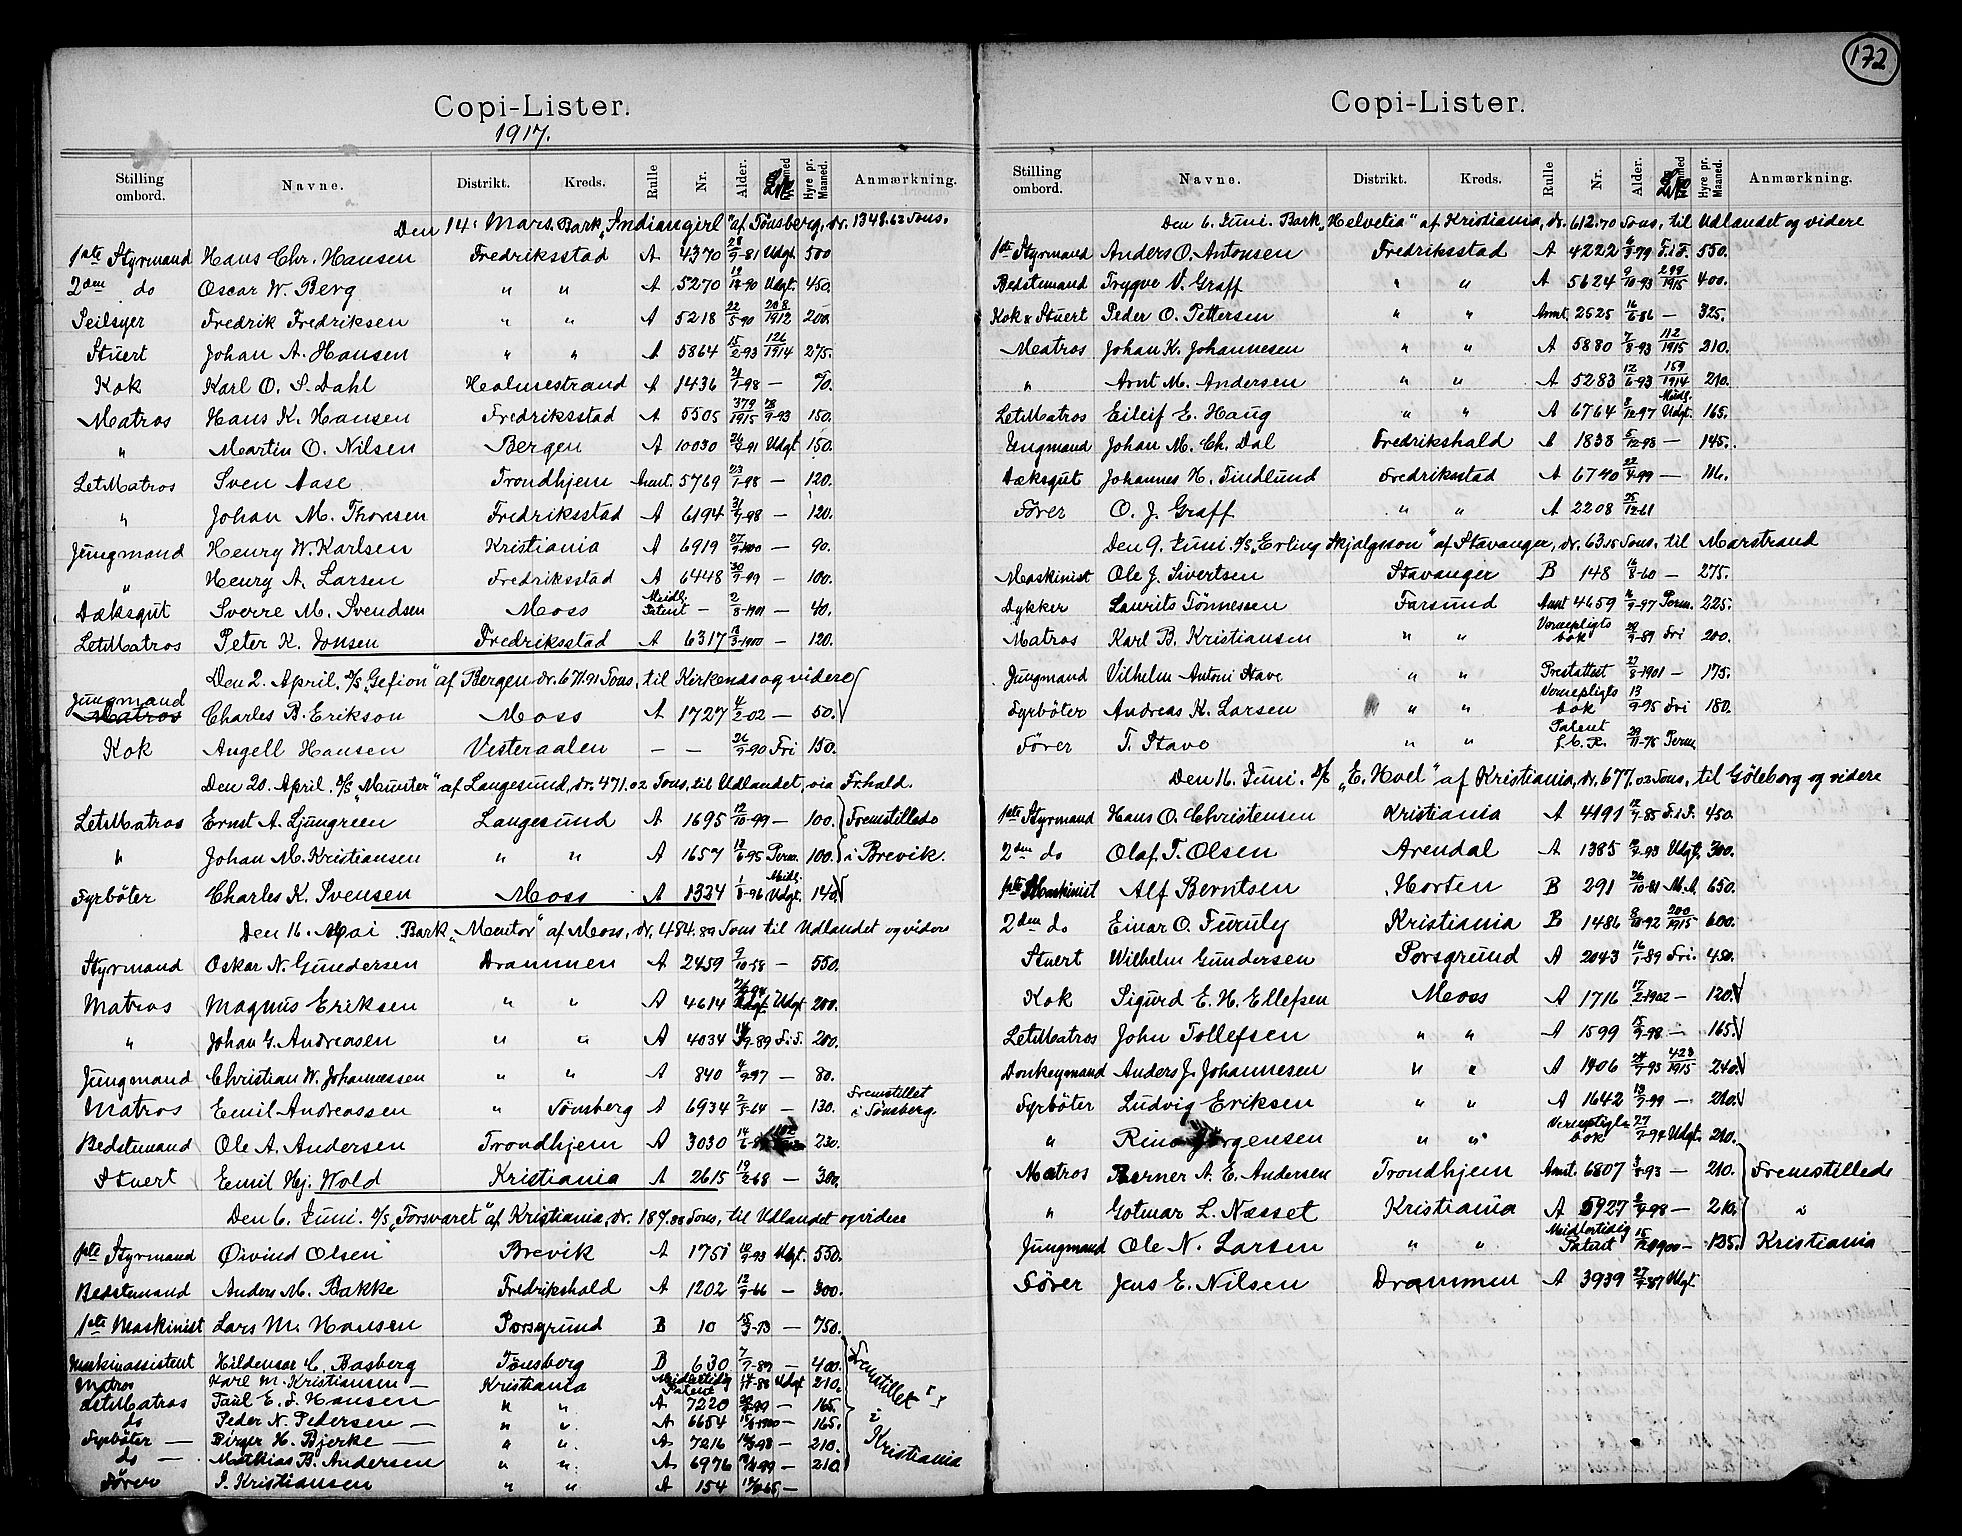 172
Copi-Lister.
1917.
Stilling ombord. Navne. Distrikt. Kreds. Rulle Nr. Alder. Hyre pr. Maaned. Anmærkning.
Den 14. Mars. Bark „Indiangirl" af Tønsberg, dr. 1348.62 Tons.
1ste Styrmand Hans Chr. Hansen Fredriksstad A 4370 28/9-81 Udgt. 500
2den do Oscar W. Berg " " A 5270 Udgt. 450.
Seilsyer Fredrik Fredriksen " " A 5218 22/5-90 208/1912 200.
Stuert Johan A. Hansen " " A 5864 15/2-93 126/1914 275.
Kok Karl O. S. Dahl Holmestrand A 1436 21/1-98 — 70.
Matros Hans K. Hansen Fredriksstad A 5505 379/1915 150.
" Martin O. Nilsen Bergen A 10030 Udgt. 150.
LetMatros Sven Aase Trondhjem Anmt. 5769 23/1-98 — 120.
" Johan M. Thoresen Fredriksstad A 6194 — 120.
Jungmand Henry W. Karlsen Kristiania A 6919 — 90.
" Henry A. Larsen Fredriksstad A 6448 — 100.
Dæksgut Sverre M. Svendsen Moss Midl. Patent — 2/8-1901 — 40.
LetMatros Peter K. Jonsen Fredriksstad A 6317 13/3-1900 — 120.
Den 2. April. D/S „Gefion" af Bergen dr. 671.91 Tons, til Kirkenes og videre
Jungmand
Matros Charles B. Erikson Moss A 1727 4/2-02 — 50.
Kok Angell Hansen Vesteraalen — — 26/9-90 Fri 150.
Den 20. April. D/S „Munster" af Langesund, dr. 471.02 Tons, til Udlandet, via Fr.hald.
LetMatros Ernst A. Ljungreen Langesund A 1695 12/10-99 — 100. Fremstillede
" Johan M. Kristiansen " " A 1657 13/6-95 Perm. 100. i Brevik.
Fyrböter Charles K. Svensen Moss A 1324 1/8-96 Midl. Udgt. 140.
Den 16. Mai Bark „Mentor" af Moss, dr. 484.89 Tons til Udlandet og videre
Styrmand Oskar N. Gundersen Drammen A 2459 9/10-58 — 550.
Matros Magnus Eriksen " " A 4614 Udgt. 200.
" Johan G. Andreasen " " A 4034 F.i.F. 200.
Jungmand Christian W. Johannessen " " A 840 — 80.
Matros Emil Andreassen " Tønsberg A 6934 2/5-64 — 130. Fremstillet i Tønsberg.
Bedstemand Ole A. Andersen Trondhjem A 3030 230.
Stuert Emil Hj. Wold Kristiania A 2615 19/2-68 — 300.
Den 6. Juni. D/S „Forsvaret" af Kristiania, dr. 187.88 Tons, til Udlandet og videre
1ste Styrmand Øivind Olsen Brevik A 1751 10/9-93 Udgt. 550.
Bedstemand Anders M. Bakke Fredrikshald A 1202 12/9-66 — 300.
1ste Maskinist Lars M. Hansen Porsgrund B 10 15/3-73 — 750.
Maskinassistent Hildemar C. Basberg Tønsberg B 630 7/7-89 — 400.
Matros Karl M. Kristiansen — Kristiania Midlertidig Patent Udgt 210. Fremstillet
LetMatros Paul E. F. Hansen " " A 7220 — 165.
do Peder N. Pedersen — " " A 6654 — 165. i
Fyrböter — Birger H. Bjerke — " " A 7216 — 210. Kristiania
do — Mathias B. Andersen " " A 6976 — 210.
Fører I. Kristiansen " " A 154 —
Copi-Lister.
Stilling ombord. Navne. Distrikt. Kreds. Rulle Nr. Alder. Hyre pr. Maaned. Anmærkning.
Den 6. Juni. Bark „Helvetia" af Kristiania, dr. 612.70 Tons, til Udlandet og videre
1ste Styrmand Anders O. Antonsen Fredriksstad A 4222 F.i.F. 550.
Bedstemand Trygve V. Graff " " A 5624 9/10-93 299/1915 400.
Kok & Stuert Peder O. Pettersen " " Anmt. 2525 16/6-86 — 325.
Matros Johan K. Johannesen " " A 5880 7/8-93 112/1915 210.
" Arnt M. Andersen " " A 5283 12/6-93 159/1914 210.
LetMatros Eileif E. Haug " " A 6764 8/12-97 Midl. Udgt. 165.
Jungmand Johan M. Ch. Dal Fredrikshald A 1838 5/12-98 — 145.
Dæksgut Johannes H. Tindlund Fredriksstad A 6740 — 116.
Fører O. J. Graff " " A 2208 25/12-61
Den 9. Juni. D/S „Erling Skjalgsson" af Stavanger, dr. 63.15 Tons, til Marstrand
Maskinist Ole J. Sivertsen Stavanger B 148 16/8-60 — 275.
Dykker Laurits Tönnessen Farsund Anmt 4659 Perm. 225.
Matros Karl B. Kristiansen " " Vernepligts bok 29/9-89 Fri 200.
Jungmand Vilhelm Antoni Stave " " Prestattest 27/8-1901 — 175.
Fyrböter Andreas K. Larsen " " Vernepligts bok 13/9-95 Fri 180.
Fører T. Stave " " Patent 29/11-75 Perm.
Den 16. Juni. D/S „E. Hoel" af Kristiania, dr. 677.02 Tons, til Göteborg og videre
1ste Styrmand Hans O. Christensen Kristiania A 4191 F.i.F. 450.
2den do Olaf T. Olsen Arendal A 1385 Udgt. 300.
1ste Maskinist Alf Berntsen Horten B 291 26/10-81 M.A. 650.
2den do Einar O. Furuly Kristiania B 1486 8/10-92 200/1915 600.
Stuert Wilhelm Gundersen Porsgrund A 2043 16/1-89 Fri. 450.
Kok Sigurd E. H. Ellefsen Moss A 1716 17/2-1902 — 120.
LetMatros John Tollefsen " " A 1599 15/9-98 — 165.
Donkeymand Anders J. Johannesen " " A 1406 423/1915 240.
Fyrböter Ludvig Eriksen " " A 1642 — 210.
" Rino Jørgensen " " Vernepligts bok Udgt. 210.
Matros Berner A. E. Andersen Trondhjem Anmt. 6807 — 210. Fremstillede
" Gotmar L. Næsset Kristiania A 5927 — 210. "
Jungmand Ole N. Larsen " " Midlertidig Patent — 135. Kristiania
Fører Jens E. Nilsen Drammen A 3939 Udgt.